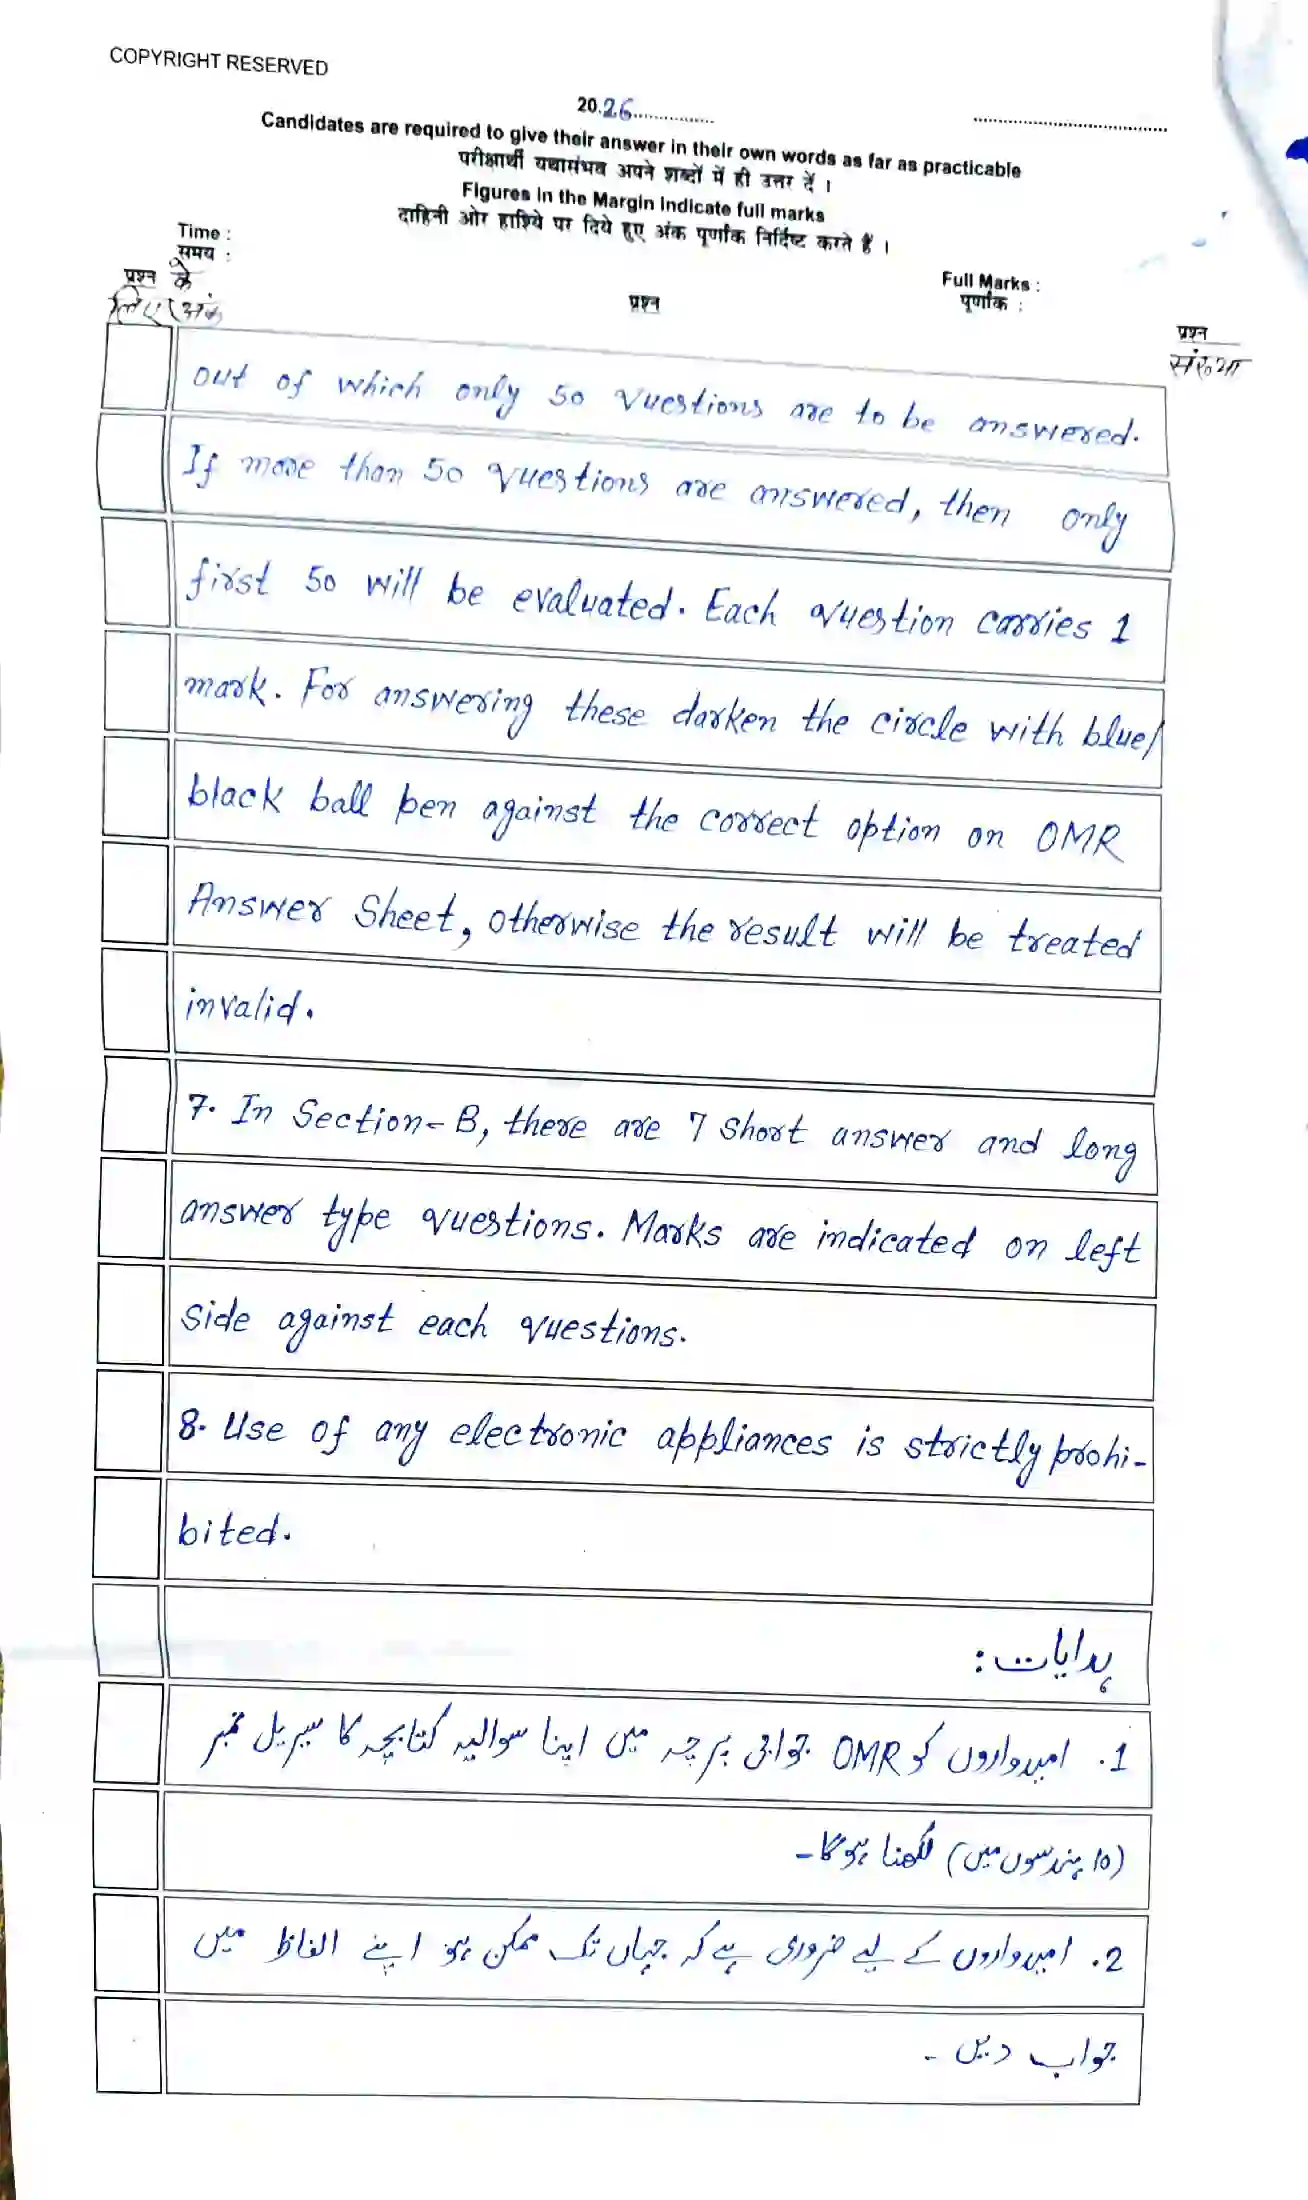 COPYRIGHT RESERVED
20.26..............
Candidates are required to give their answer in their own words as far as practicable
परीक्षार्थी यथासंभव अपने शब्दों में ही उत्तर दें ।
Figures in the Margin indicate full marks
दाहिनी ओर हाशिये पर दिये हुए अंक पूर्णांक निर्दिष्ट करते हैं ।
Time :
समय :
Full Marks :
पूर्णांक :
प्रश्न के
लिए अंक
प्रश्न
प्रश्न
संख्या
out of which only 50 questions are to be answered.
If more than 50 questions are answered, then only
first 50 will be evaluated. Each question carries 1
mark. For answering these darken the circle with blue/
black ball pen against the correct option on OMR
Answer Sheet, otherwise the result will be treated
invalid.
7. In Section-B, there are 7 short answer and long
answer type questions. Marks are indicated on left
side against each questions.
8. Use of any electronic appliances is strictly prohi-
bited.
ہدایات :
1. امیدواروں کو OMR جوابی پرچہ میں اپنا سوالیہ کتابچہ کا سیریل نمبر
(10 ہندسوں میں) لکھنا ہوگا۔
2. امیدواروں کے لیے ضروری ہے کہ جہاں تک ممکن ہو اپنے الفاظ میں
جواب دیں ۔